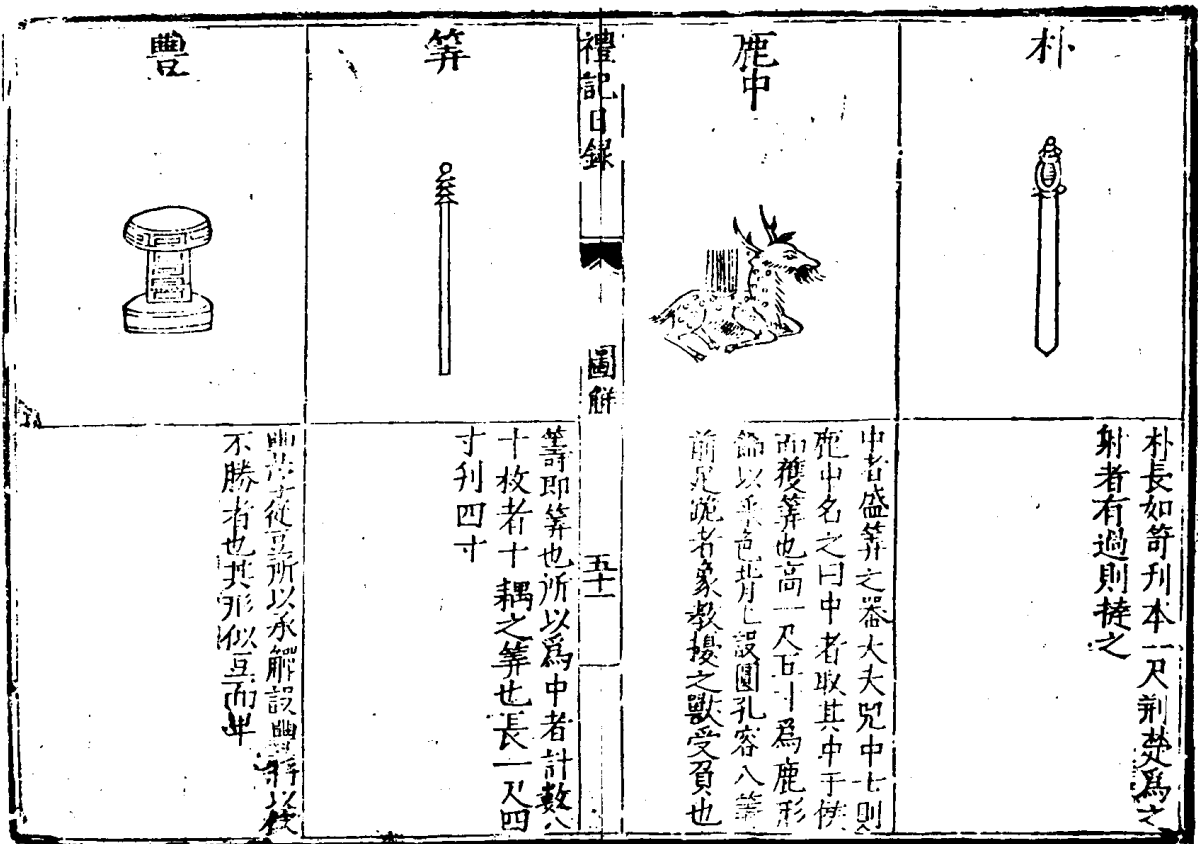 朴
朴長如笴刋本一尺荆楚爲之
射者有過則撻之
鹿中
中者盛筭之器大夫兕中士則
鹿中名之曰中者取其中于侯
而獲筭也高一尺五寸爲鹿形
飾以采色背上設圓孔容八筭
前足跪者象教擾之獸受負也
禮記目録
圖解
五十一
筭
籌即筭也所以爲中者計數八
十枚者十耦之筭也長一尺四
寸刋四寸
豐
從豆所以承觶設豐觶以飲
不勝者也其形似豆而卑